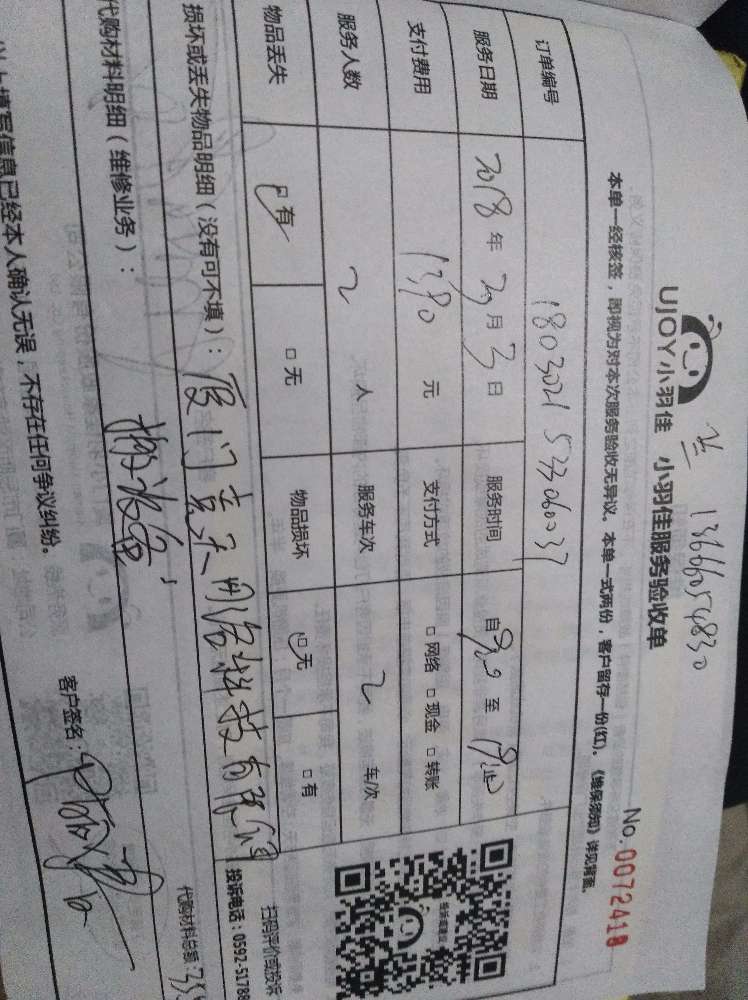 兰 13666054830
UJOY小羽佳 小羽佳服务验收单
No. 0072418
本单一经核签，即视为对本次服务验收无异议。本单一式两份，客户留存一份(红)。《维保须知》详见背面。
订单编号 180302153306037
服务日期 2018 年 月 3 日 服务时间 自 至
支付费用 1390 元 支付方式 □ 网络 □ 现金 □ 转账
服务人数 2 人 服务车次 2 车/次
物品丢失 □ 有 □ 无 物品损坏 □ 无 □ 有
扫码评价或投诉
投诉电话：0592-51788
损坏或丢失物品明细（没有可不填）：厦门 科技有限
代购材料明细（维修业务）：
代购材料总额：
以上填写信息已经本人确认无误，不存在任何争议纠纷。
客户签名：